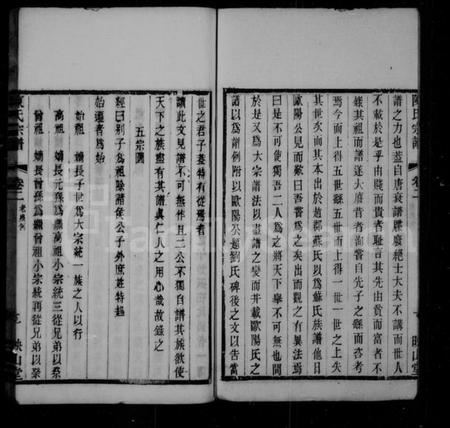 陳氏宗譜 卷二 映山堂
譜之力也蓋自唐衰譜牒廢絕士大夫不講而世人
不載於是乎由賤而貴者恥言其先由貧而富者不
錄其祖而譜遂大廢昔者洵嘗自先子之銘而咨考
焉今而上得五世銘五世而上得一世一世之上失
其世次而其本出於趙郡蘇氏以為蘇氏族譜他日
歐陽公見而歎曰吾嘗為之矣出而觀之有異法焉
曰是不可使獨吾二人為之將天下舉不可無也因
於是又為大宗譜法以盡譜之變而并載歐陽氏之
譜以為譜例附以歐陽公題劉氏碑後之文以告當
世之君子蓋特有從焉者
讀此文見譜不可無作且二公不獨自譜其族欲使
天下之族盡有其譜眞仁人之用心哉故錄之
五宗圖
經曰別子為祖除諸侯公子外庶姓特起
始遷者為始
始祖 嫡長子世為大宗統一族之人以行
高祖 嫡長元孫為繼高祖小宗統三從兄弟以祭
曾祖 嫡長曾孫為繼曾祖小宗統再從兄弟以祭
陳氏宗譜 卷二 老應例 映山堂